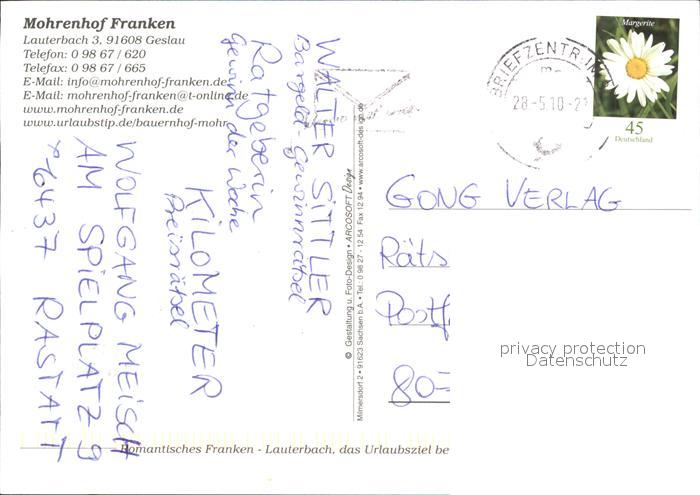 Mohrenhof Franken
Lauterbach 3, 91608 Geslau
Telefon: 0 98 67 / 620
Telefax: 0 98 67 / 665
E-Mail: info@mohrenhof-franken.de
E-Mail: mohrenhof-franken@t-online.de
www.mohrenhof-franken.de
www.urlaubstip.de/bauernhof-mohr
WALTER SITTLER
Bargeld-Gewinnrätsel
Ratgeberin
Gewinn der Woche
KILOMETER
Preisrätsel
WOLFGANG MEISCH
AM SPIELPLATZ 9
76437 RASTATT
© Gestaltung u. Foto-Design • ARCOSOFT Design
Milmersdorf 2 • 91623 Sachsen b.A. • Tel.: 0 98 27 - 12 54 Fax 12 94 • www.arcosoft-design.de
BRIEFZENTRUM
28-5.10-21
Margerite
45
Deutschland
GONG VERLAG
Räts
Postf
80
privacy protection
Datenschutz
Romantisches Franken - Lauterbach, das Urlaubsziel be